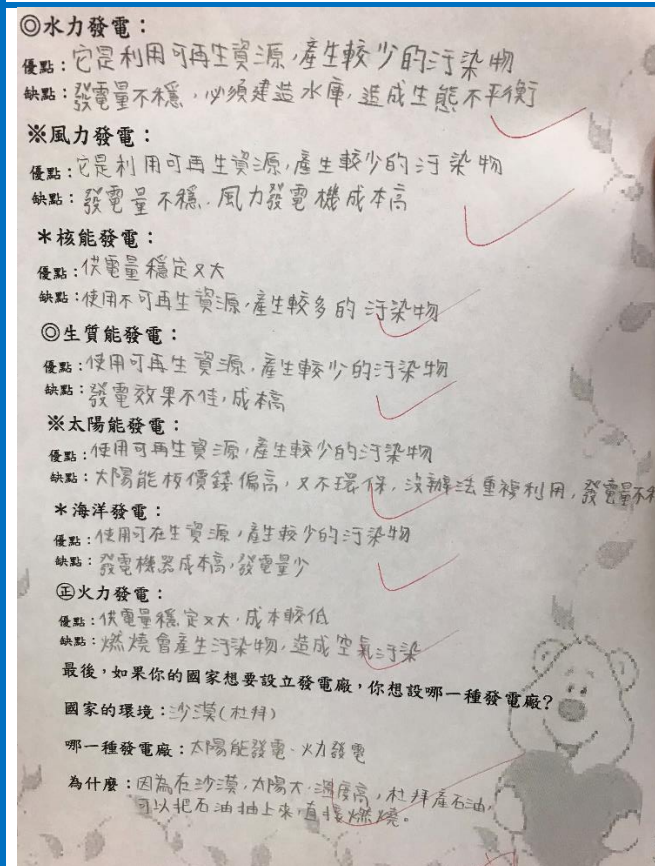 ◎水力發電：
優點：它是利用可再生資源，產生較少的污染物
缺點：發電量不穩，必須建造水庫，造成生態不平衡
※風力發電：
優點：它是利用可再生資源，產生較少的污染物
缺點：發電量不穩．風力發電機成本高
＊核能發電：
優點：供電量穩定又大
缺點：使用不可再生資源，產生較多的污染物
◎生質能發電：
優點：使用可再生資源，產生較少的污染物
缺點：發電效果不佳，成本高
※太陽能發電：
優點：使用可再生資源，產生較少的污染物
缺點：太陽能板價錢偏高，又不環保，沒辦法重複利用，發電量不
＊海洋發電：
優點：使用可在生資源，產生較少的污染物
缺點：發電機器成本高，發電量少
㊣火力發電：
優點：供電量穩定又大，成本較低
缺點：燃燒會產生污染物，造成空氣污染
最後，如果你的國家想要設立發電廠，你想設哪一種發電廠？
國家的環境：沙漠(杜拜)
哪一種發電廠：太陽能發電、火力發電
為什麼：因為在沙漠，太陽大，溫度高，杜拜產石油，
可以把石油抽上來，直接燃燒。